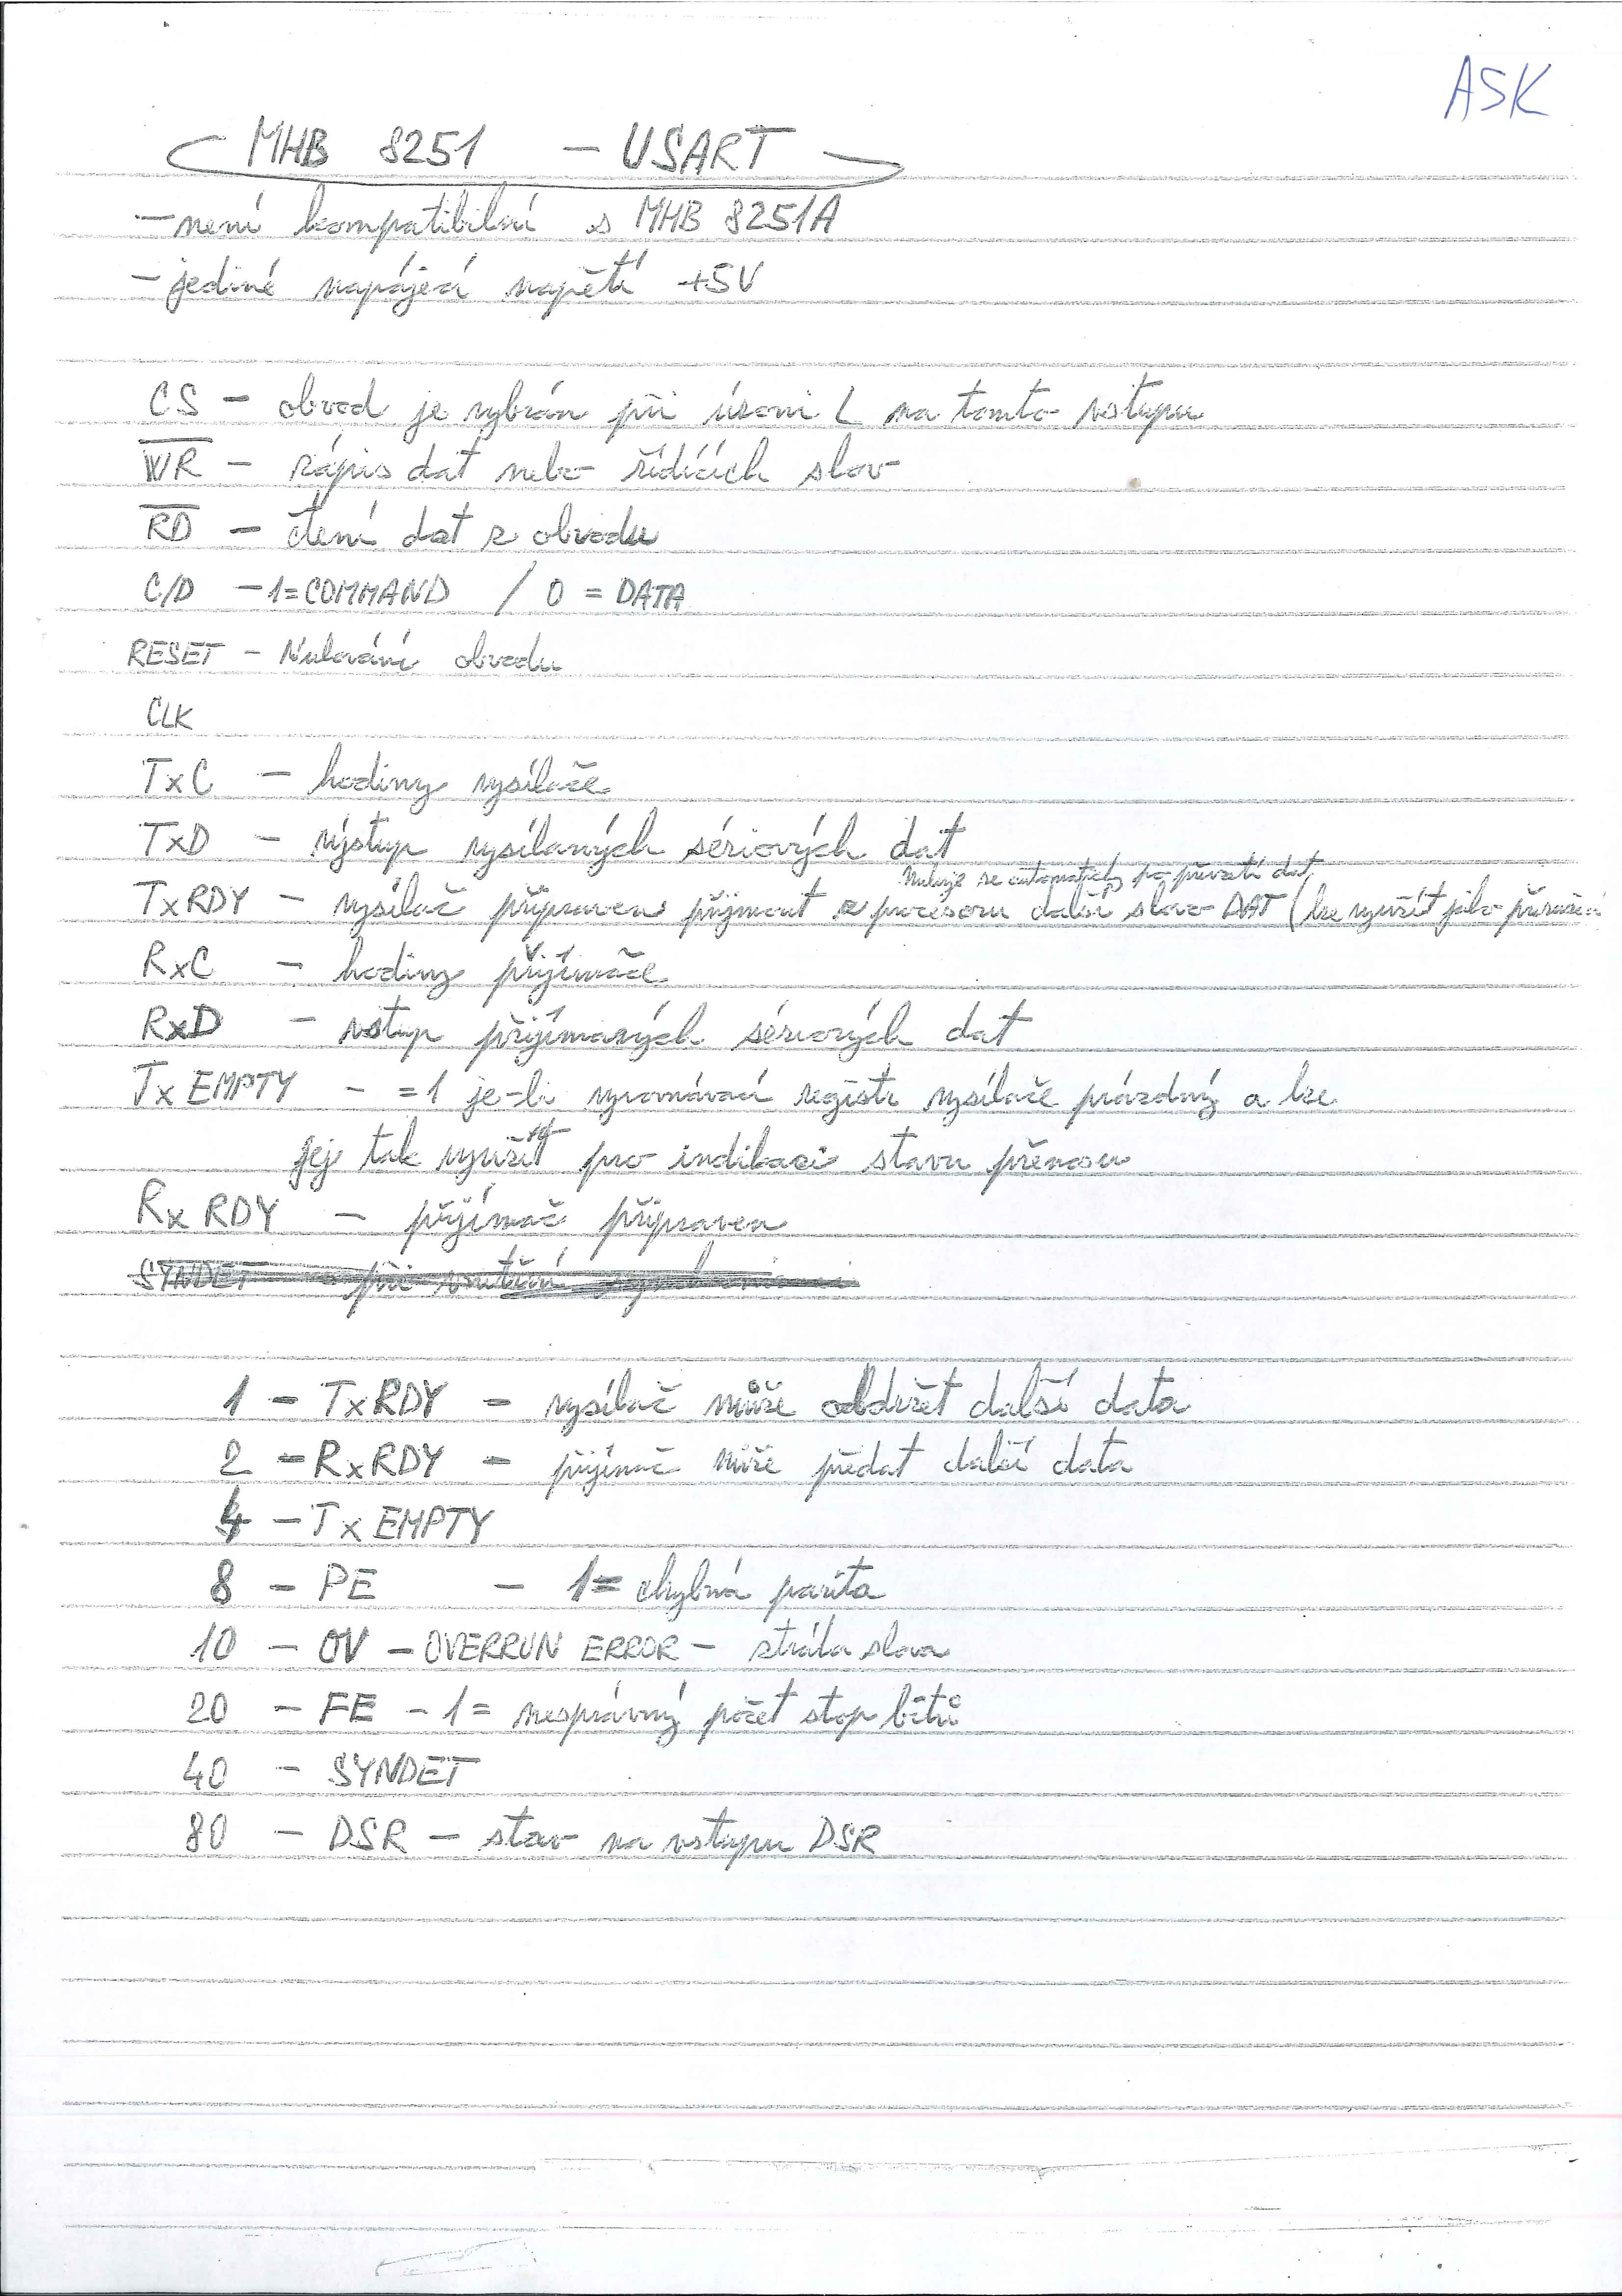 ASK
MHB 8251 – USART
– není kompatibilní s MHB 8251A
– jediné napájecí napětí +5V
CS – obvod je vybrán při úrovni L na tomto vstupu
W̅R̅ – zápis dat nebo řídících slov
R̅D̅ – čtení dat z obvodu
C/D – 1=COMMAND / 0 = DATA
RESET – Nulování obvodu
CLK
TxC – hodiny vysílače
TxD – výstup vysílaných sériových dat
Nuluje se automaticky po převzetí dat
TxRDY – vysílač připraven přijmout z procesoru další slovo DAT (lze využít jako přerušení
RxC – hodiny přijímače
RxD – vstup přijímaných sériových dat
TxEMPTY – =1 je-li vyrovnávací registr vysílače prázdný a lze
jej tak využít pro indikaci stavu přenosu
RxRDY – přijímač připraven
SYNDET při vnitřní
1 – TxRDY – vysílač může obdržet další data
2 – RxRDY – přijímač může předat další data
4 – TxEMPTY
8 – PE – 1= chybná parita
10 – OV – OVERRUN ERROR – ztráta slova
20 – FE – 1= nesprávný počet stop bitů
40 – SYNDET
80 – DSR – stav na vstupu DSR